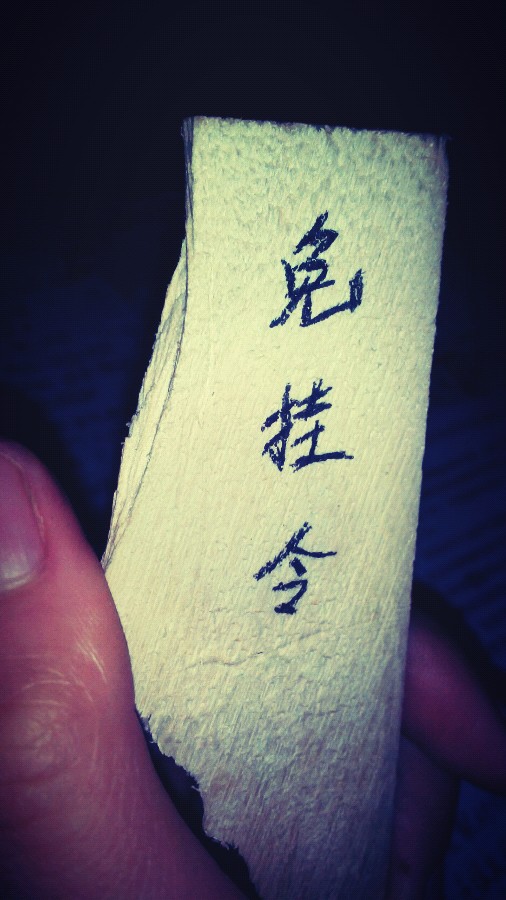 免挂令